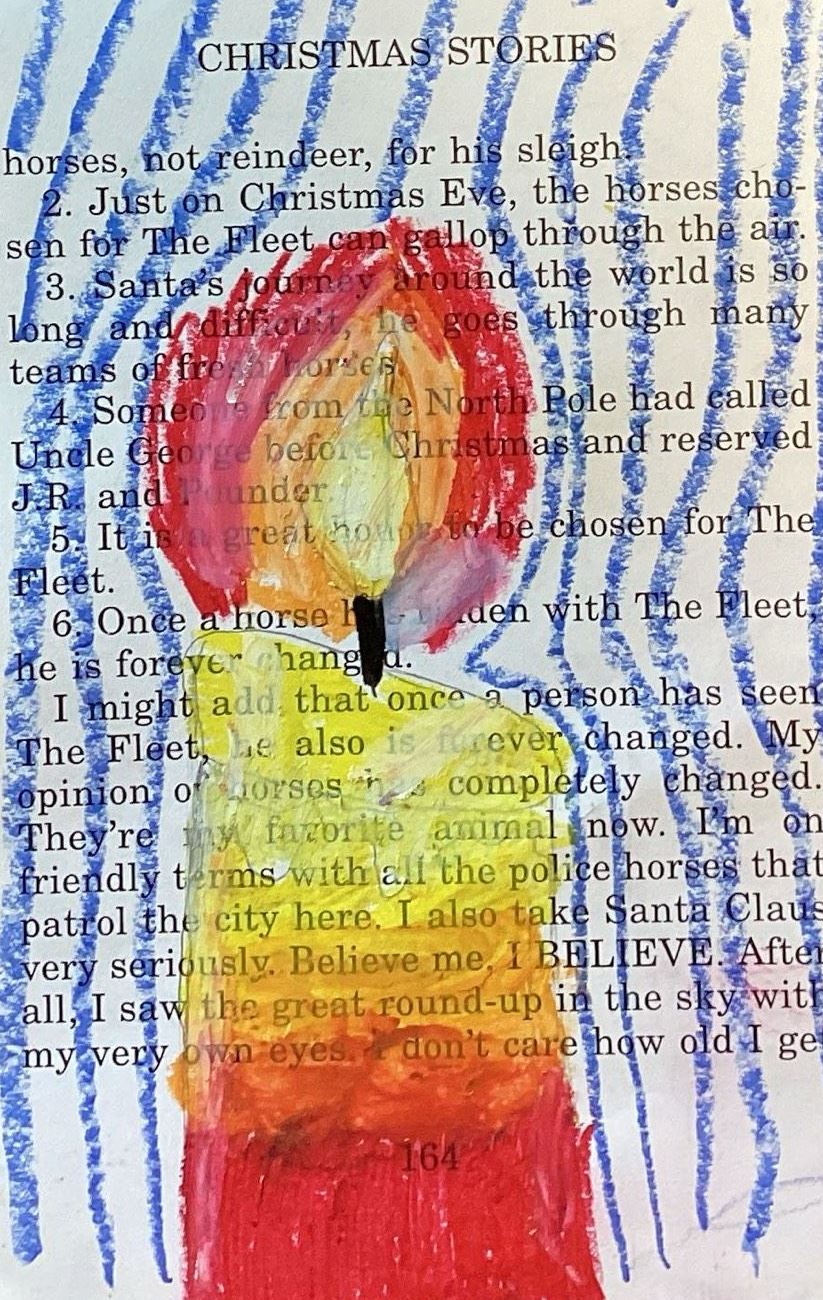 CHRISTMAS STORIES
horses, not reindeer, for his sleigh.
2. Just on Christmas Eve, the horses cho-
sen for The Fleet can gallop through the air.
3. Santa's journey around the world is so
long and difficult, he goes through many
teams of fresh horses.
4. Someone from the North Pole had called
Uncle George before Christmas and reserved
J.R. and Pounder.
5. It is a great honor to be chosen for The
Fleet.
6. Once a horse has ridden with The Fleet,
he is forever changed.
I might add that once a person has seen
The Fleet, he also is forever changed. My
opinion of horses has completely changed.
They're my favorite animal now. I'm on
friendly terms with all the police horses that
patrol the city here. I also take Santa Claus
very seriously. Believe me, I BELIEVE. After
all, I saw the great round-up in the sky with
my very own eyes. I don't care how old I ge
164